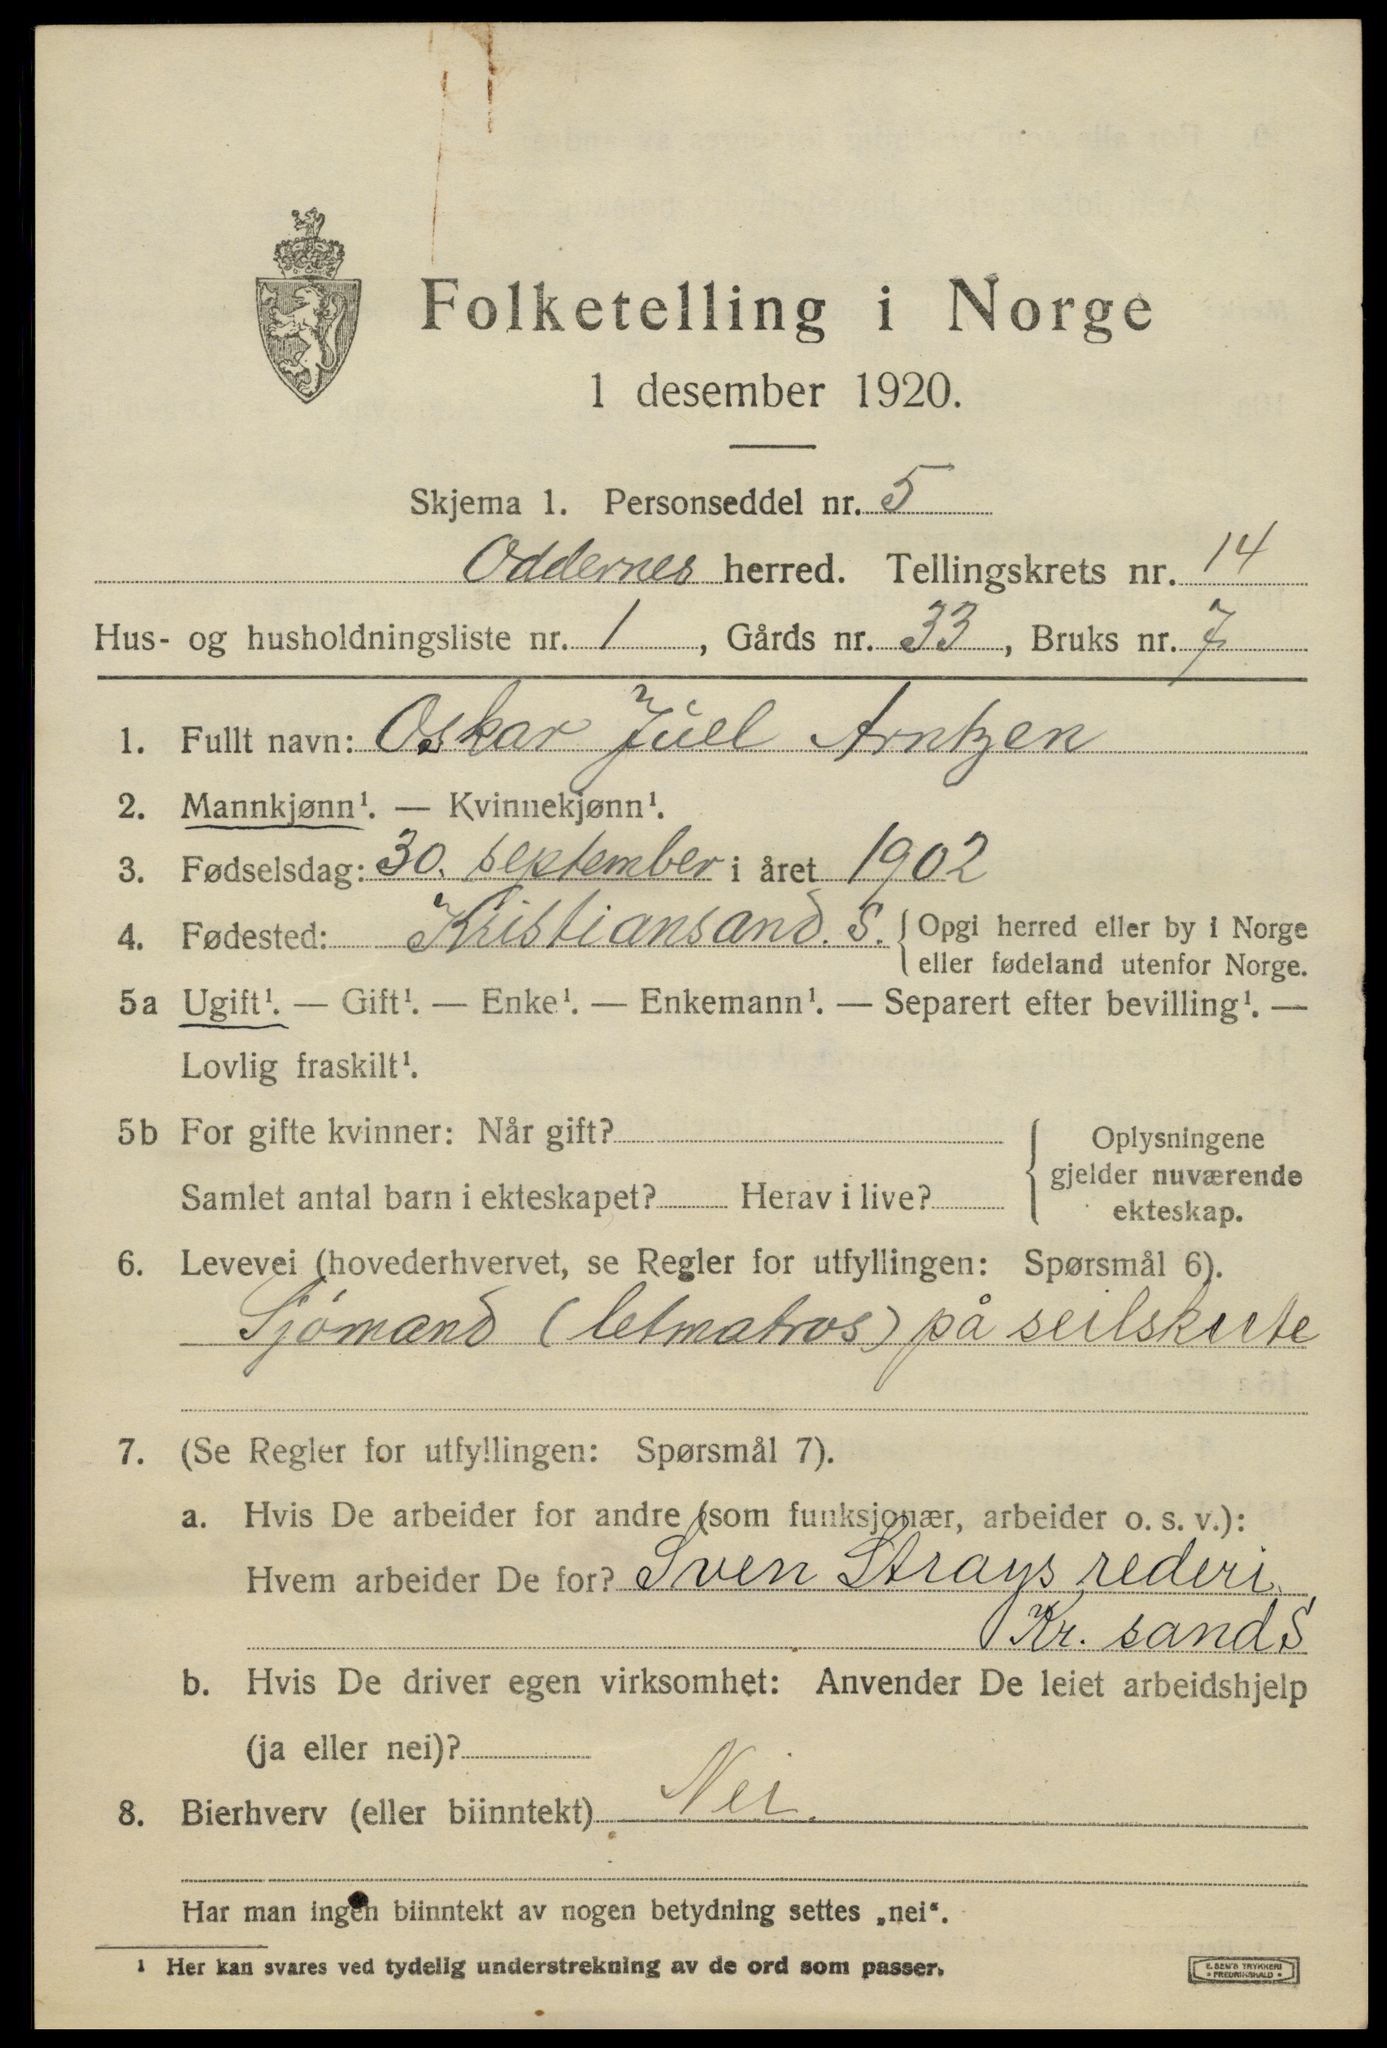 Folketelling i Norge
1 desember 1920.
Skjema 1. Personseddel nr. 5
Oddernes herred. Tellingskrets nr. 14
Hus- og husholdningsliste nr. 1, Gårds nr. 33, Bruks nr. 7
1. Fullt navn: Oskar Juel Arntzen
2. Mannkjønn¹. — Kvinnekjønn¹.
3. Fødselsdag: 30. september i året 1902
4. Fødested: Kristiansand. S. { Opgi herred eller by i Norge
eller fødeland utenfor Norge.
5a Ugift¹. — Gift¹. — Enke¹. — Enkemann¹. — Separert efter bevilling¹. —
Lovlig fraskilt¹.
5b For gifte kvinner: Når gift?
Samlet antal barn i ekteskapet? Herav i live?
{ Oplysningene
gjelder nuværende
ekteskap.
6. Levevei (hovederhvervet, se Regler for utfyllingen: Spørsmål 6).
Sjömand (letmatros) på seilskute
7. (Se Regler for utfyllingen: Spørsmål 7).
a. Hvis De arbeider for andre (som funksjonær, arbeider o. s. v.):
Hvem arbeider De for? Sven Strays rederi.
Kr. sand S
b. Hvis De driver egen virksomhet: Anvender De leiet arbeidshjelp
(ja eller nei)?
8. Bierhverv (eller biinntekt) Nei.
Har man ingen biinntekt av nogen betydning settes „nei“.
¹ Her kan svares ved tydelig understrekning av de ord som passer.
E. SEM'S TRYKKERI
* FREDRIKSHALD *